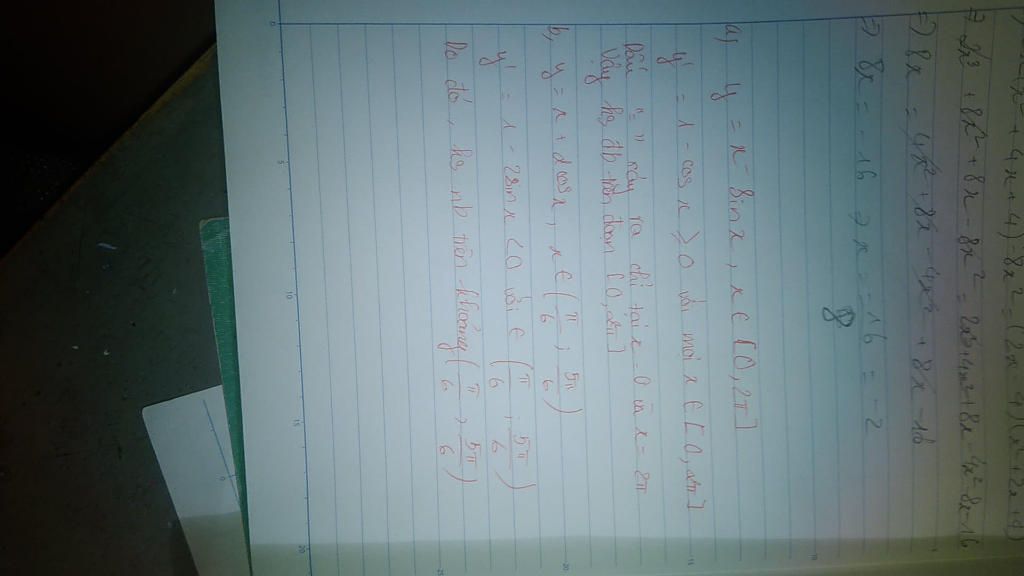 4x² + 4x + 4) - 8x² = (2x - 4)(x² + 2x + 4)
⇒ 2x³ + 8x² + 8x - 8x² = 2x³ + 4x² + 8x - 4x² - 8x - 16
⇒ 8x = 4x² + 8x - 4x² + 8x - 16
⇒ 8x = -16 ⇒ x = -16/8 = -2
a, y = x - sin x, x ∈ [0, 2π]
y' = 1 - cos x ≥ 0 với mọi x ∈ [0, 2π]
Dấu "=" xảy ra chỉ tại x = 0 và x = 2π
Vậy hs đb trên đoạn [0, 2π]
b, y = x + 2cos x, x ∈ (π/6; 5π/6)
y' = 1 - 2sin x < 0 với ∈ (π/6; 5π/6)
Do đó, hs nb trên khoảng (π/6; 5π/6)
0 5 10 15 20
15 20 25